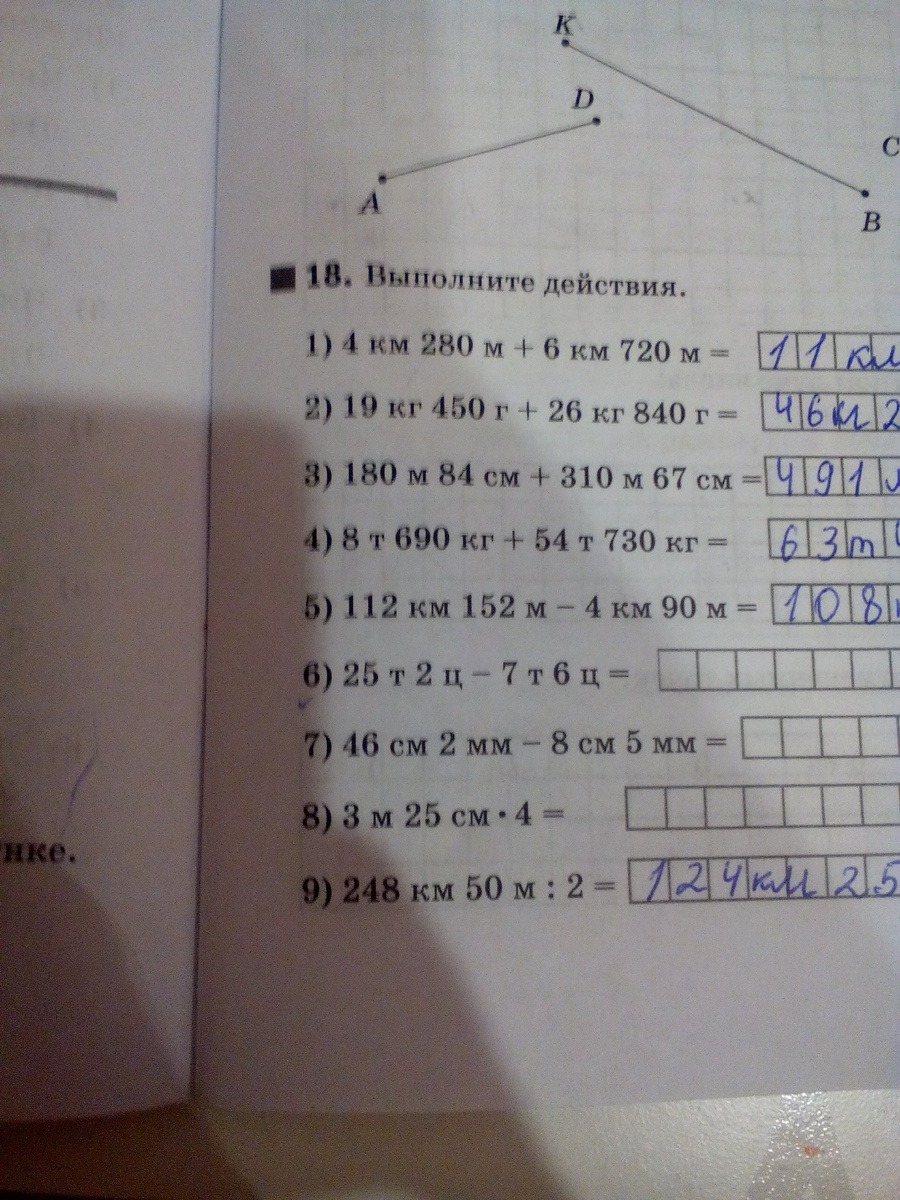 K
D
C
A
B
18. Выполните действия.
1) 4 км 280 м + 6 км 720 м = 11 км
2) 19 кг 450 г + 26 кг 840 г = 46 кг 2
3) 180 м 84 см + 310 м 67 см = 491 м
4) 8 т 690 кг + 54 т 730 кг = 63 т
5) 112 км 152 м – 4 км 90 м = 108
6) 25 т 2 ц – 7 т 6 ц =
7) 46 см 2 мм – 8 см 5 мм =
8) 3 м 25 см · 4 =
нке.
9) 248 км 50 м : 2 = 124 км 25